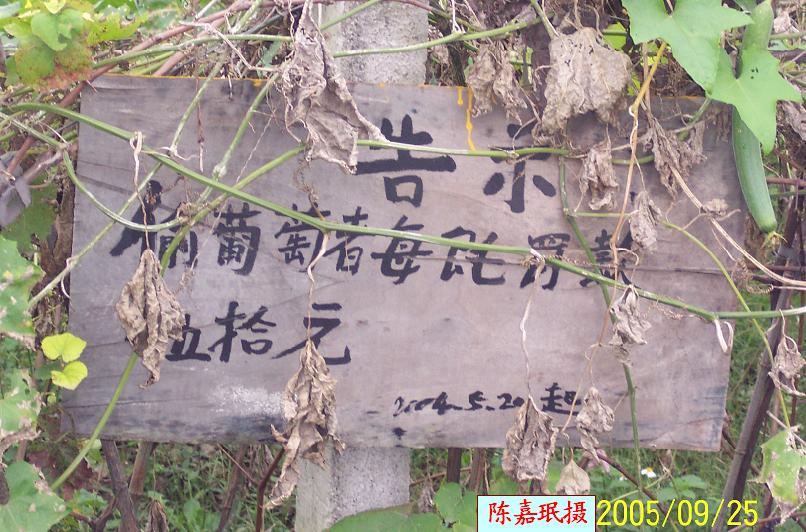 告示
偷葡萄者每 罚款
伍拾元
2004.5.20 起
陈嘉珉摄
2005/09/25